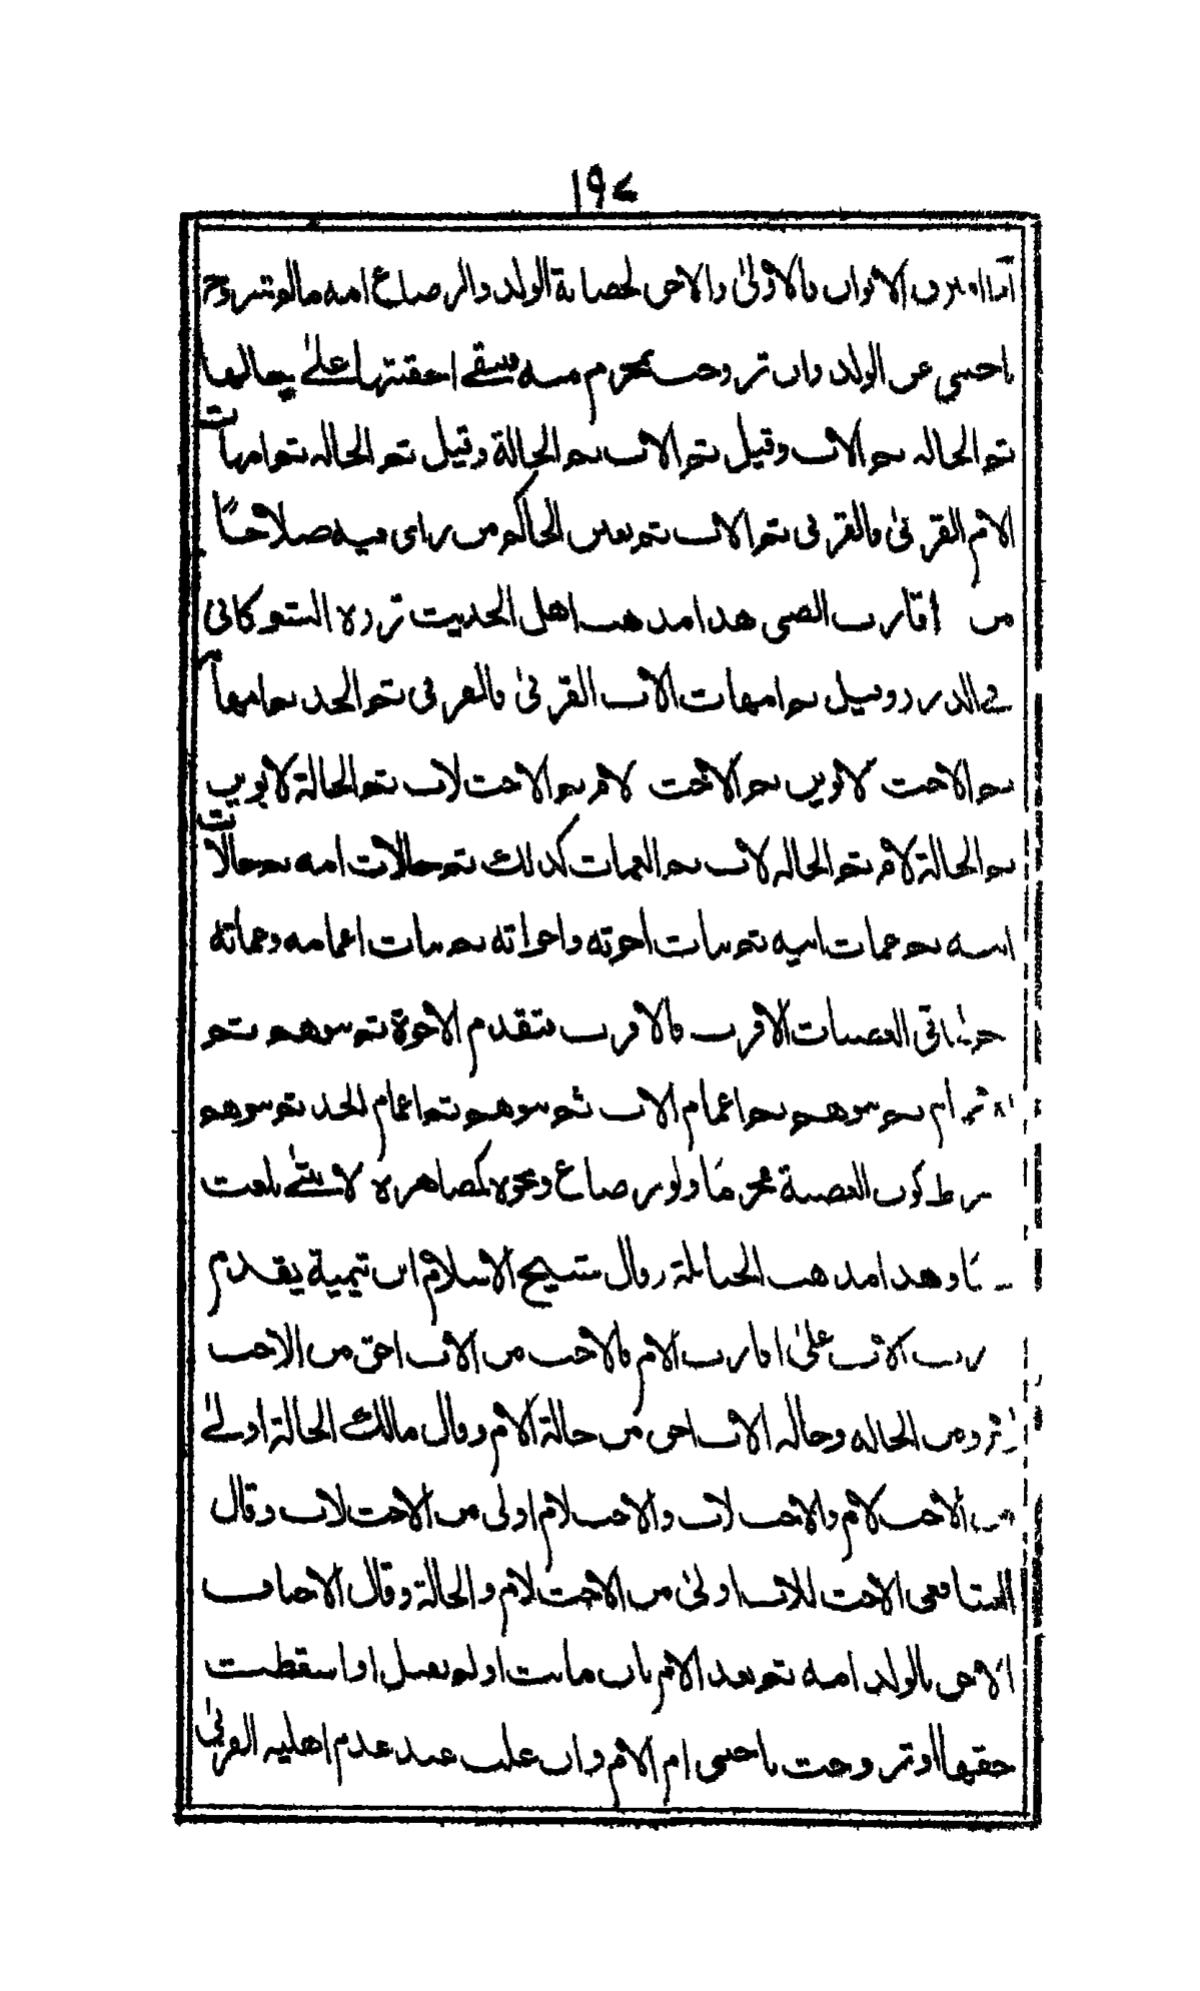 ١٩٧
اذا افترق الابوان فالاولى والاحق لحضانة الولد والرضاع امه مالم تتزوج
باجنبى عن الولد وان تزوجت بمحرم منه يبقے احقيتها علے حالها
ثم الخاله ثم الاب وقيل ثم الاب ثم الخالة وقيل ثم الخاله ثم امهات
الام القربىٰ فالقربى ثم الاب ثم يعين الحاكم من راى فيه صلاحًا
من اقارب الصبى هذا مذهب اهل الحديث قرره الشوكانى
فے الدرر وقيل ثم امهات الاب القربىٰ فالقربى ثم الجد ثم امهاته
ثم الاخت لابوين ثم الاخت لام ثم الاخت لاب ثم الخالة لابوين
ثم الخالة لام ثم الخاله لاب ثم العمات كذلك ثم خالات امه ثم خالات
ابيه ثم عمات ابيه ثم بنات اخوته واخواته ثم بنات اعمامه وعماته
ثم لباقى العصبات الاقرب فالاقرب فتقدم الاخوة ثم بنوهم ثم
الاعمام ثم بنوهم ثم اعمام الاب ثم بنوهم ثم اعمام الجد ثم بنوهم
بشرط كون العصبة محرما ولو برضاع ونحوه كمصاهرة لانثےٰ بلغت
سبعا وهذا مذهب الحنابلة وقال شيخ الاسلام ابن تيمية يقدم
اقارب الاب علىٰ اقارب الام فالاخت من الاب احق من الاخت
من الام ومن الخاله وخاله الاب احق من خالة الام وقال مالك الخالة اولےٰ
من الاخت لام والاخت لاب والاخت لام اولى من الاخت لاب وقال
الشافعى الاخت للاب اولىٰ من الاخت لام والخالة وقال الاحناف
الاحق بالولد امه ثم بعد الام بان ماتت اولم تقبل او اسقطت
حقها او تزوجت باجنبى ام الام وان علت عند عدم اهليه القربىٰ